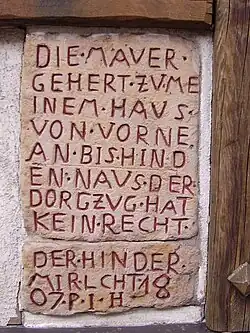 DIE·MAUER·
GEHERT·ZU·ME
INEM·HAUS·
VON·VORNE
AN·BIS·HIND
EN·NAUS·DER
DORGZUG·HAT
KEIN·RECHT·
DER·HINDER
MIR·LCHT·18
07·P·I·H·